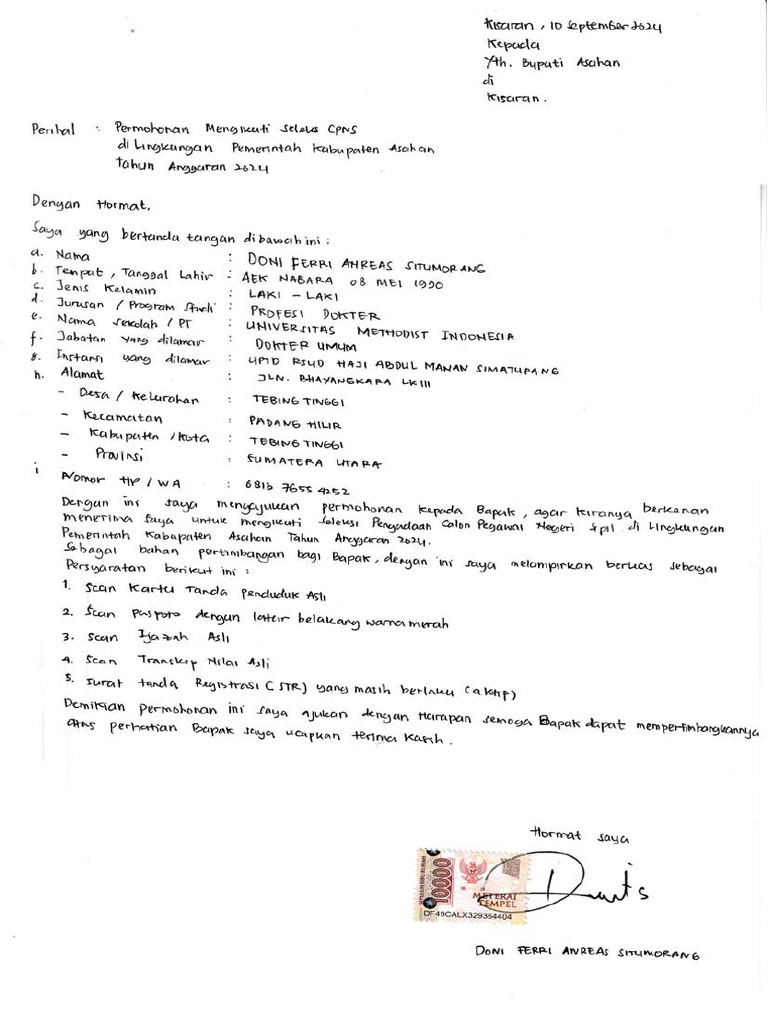 Kisaran, 10 September 2024
Kepada
Yth. Bupati Asahan
di
Kisaran.
Perihal : Permohonan Mengikuti Seleksi CPNS
di Lingkungan Pemerintah Kabupaten Asahan
tahun Anggaran 2024
Dengan Hormat,
Saya yang bertanda tangan dibawah ini :
a. Nama : DONI FERRI ANREAS SITUMORANG
b. Tempat, Tanggal Lahir : AEK NABARA 08 MEI 1990
c. Jenis Kelamin : LAKI - LAKI
d. Jurusan / Program Studi : PROFESI DOKTER
e. Nama Sekolah / PT : UNIVERSITAS METHODIST INDONESIA
f. Jabatan yang dilamar : DOKTER UMUM
g. Instansi yang dilamar : UPTD RSUD HAJI ABDUL MANAN SIMATUPANG
h. Alamat : JLN. BHAYANGKARA LK III
- Desa / Kelurahan : TEBING TINGGI
- Kecamatan : PADANG HILIR
- Kabupaten / Kota : TEBING TINGGI
- Provinsi : SUMATERA UTARA
i Nomor HP / WA : 6813 7655 4252
Dengan ini saya mengajukan permohonan kepada Bapak, agar kiranya berkenan
menerima saya untuk mengikuti seleksi Pengadaan Calon Pegawai Negeri Sipil di Lingkungan
Pemerintah Kabupaten Asahan Tahun Anggaran 2024.
Sebagai bahan pertimbangan bagi Bapak, dengan ini saya melampirkan berkas sebagai
Persyaratan berikut ini :
1. Scan Kartu Tanda Penduduk Asli
2. Scan Pasfoto dengan latar belakang warna merah
3. Scan Ijazah Asli
4. Scan Transkip Nilai Asli
5. Surat tanda Registrasi (STR) yang masih berlaku (aktip)
Demikian permohonan ini saya ajukan dengan Harapan semoga Bapak dapat mempertimbangkannya
atas perhatian Bapak saya ucapkan terima kasih.
Hormat saya
10000
METERAI
TEMPEL
DF49CALX329364404
DONI FERRI ANREAS SITUMORANG